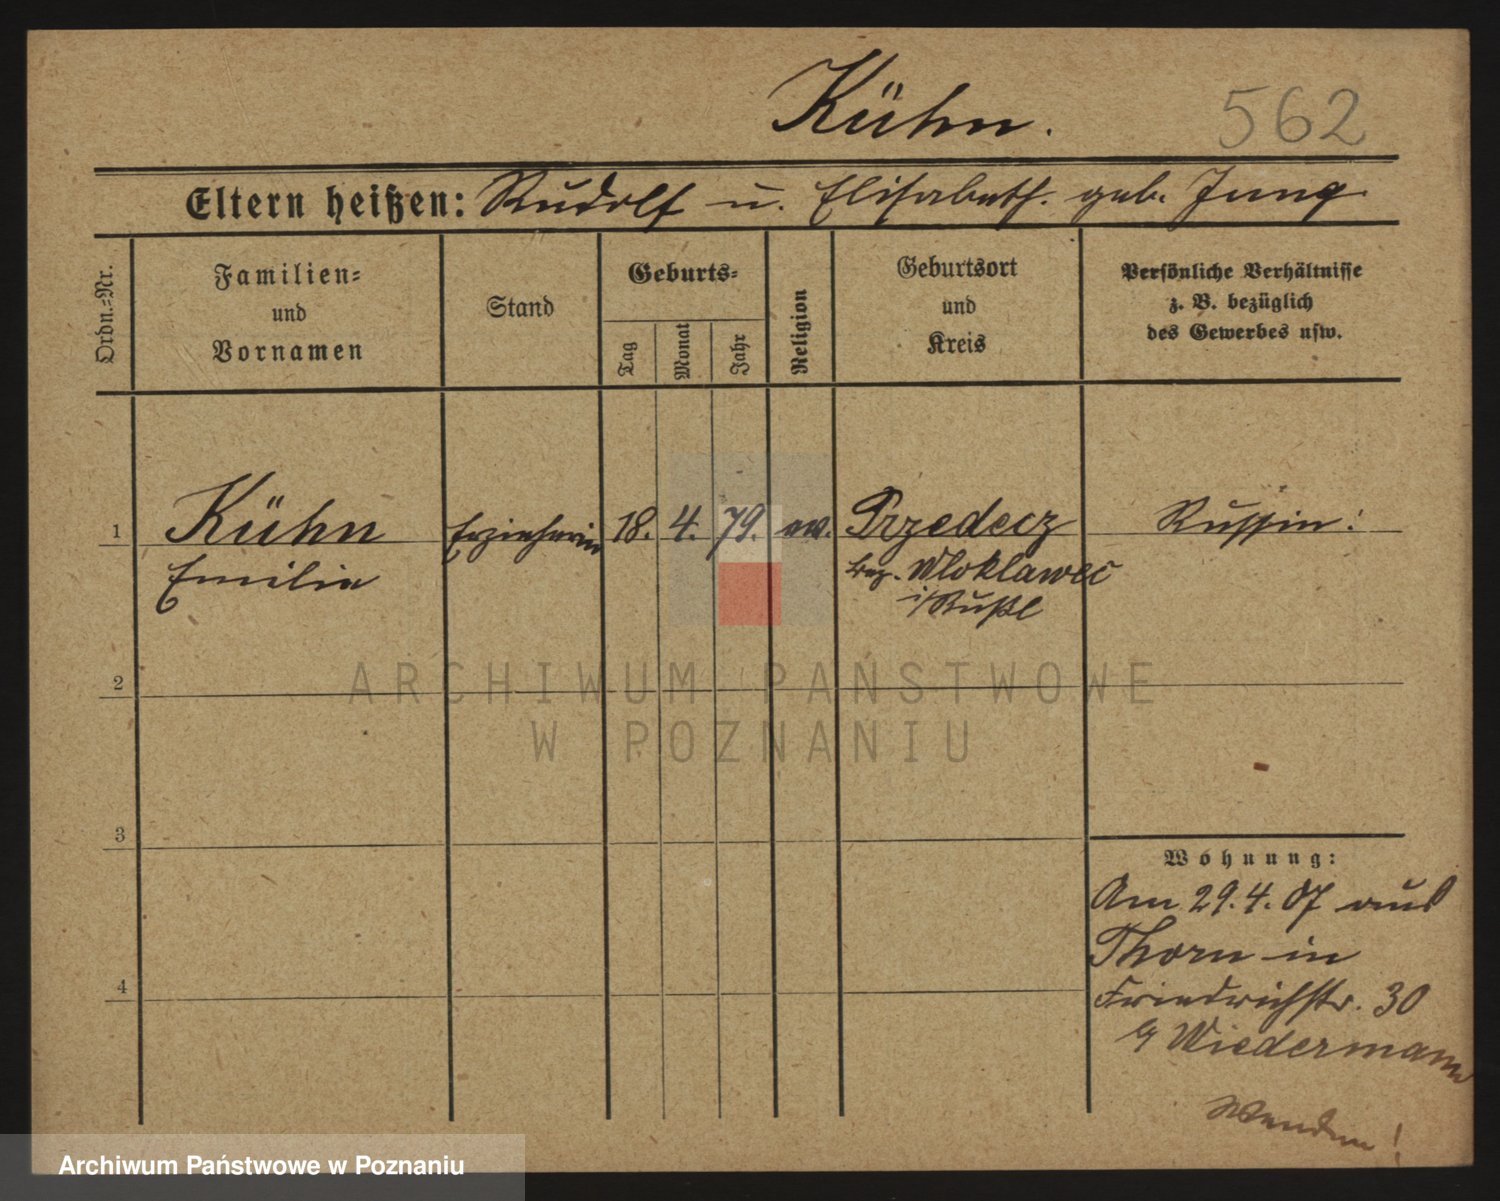 Kühn.
562
Eltern heißen: Rudolf u. Elisabeth. geb. Jung.
Ordn.-Nr.
Familien-
und
Vornamen
Stand
Geburts-
Tag
Monat
Jahr
Religion
Geburtsort
und
Kreis
Persönliche Verhältnisse
z. B. bezüglich
des Gewerbes usw.
1
Kühn
Erzieherin
18.
4.
79.
ev.
Przedecz
Russin!
Emilie
Wloklawec
i/Rußl
ARCHIWUM PAŃSTWOWE
W POZNANIU
2
3
4
Wohnung:
Am 29.4.07 aus
Thorn in
Friedrichstr. 30
Wiedermann
Wenden!
Archiwum Państwowe w Poznaniu